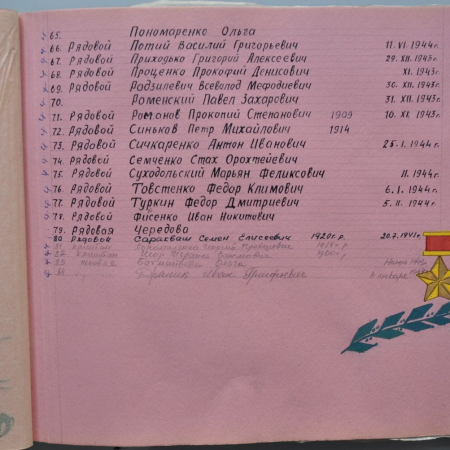 65. Пономаренко Ольга
66. Рядовой Потий Василий Григорьевич 11. VI. 1944г.
67. Рядовой Приходько Григорий Алексеевич 29. XII. 1943г.
68. Рядовой Проценко Прокофий Денисович XI. 1943г.
69. Рядовой Радзилевич Всеволод Мефодиевич 30. XII. 1943г.
70. Роменский Павел Захарович 31. XII. 1943г.
71. Рядовой Романов Прокопий Степанович 1909 10. XI. 1943г.
72. Рядовой Синьков Петр Михайлович 1914
73. Рядовой Сичкаренко Антон Иванович 25. I. 1944г.
74. Рядовой Семченко Стах Орохтейевич
75. Рядовой Суходольский Марьян Феликсович II. 1944г.
76. Рядовой Товстенко Федор Климович 6. I. 1944г.
77. Рядовой Туркин Федор Дмитриевич 5. II. 1944г.
78. Рядовой Фисенко Иван Никитович
79. Рядовая Чередова
80 Рядовой Сарасваш Семен Елисеевич 1920г.р. 20.7.1941г.
81
82
83 Ольга
84 Иван